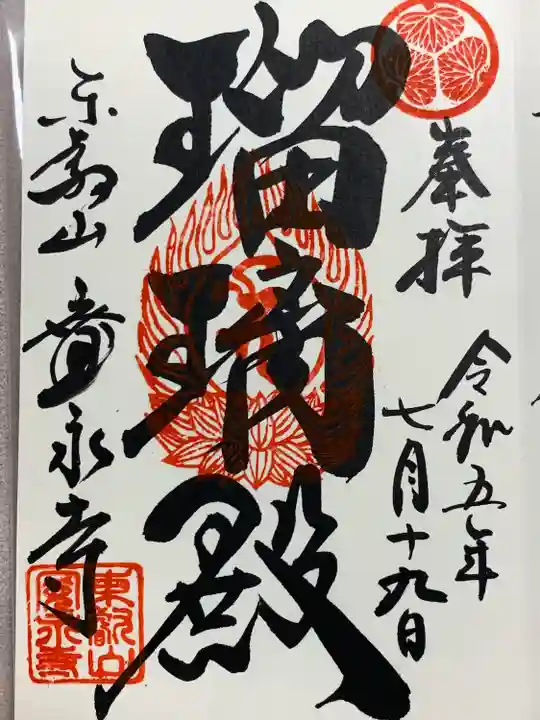 奉拝
令和五年
七月十九日
瑠璃殿
東叡山
寛永寺
東叡山
寛永寺